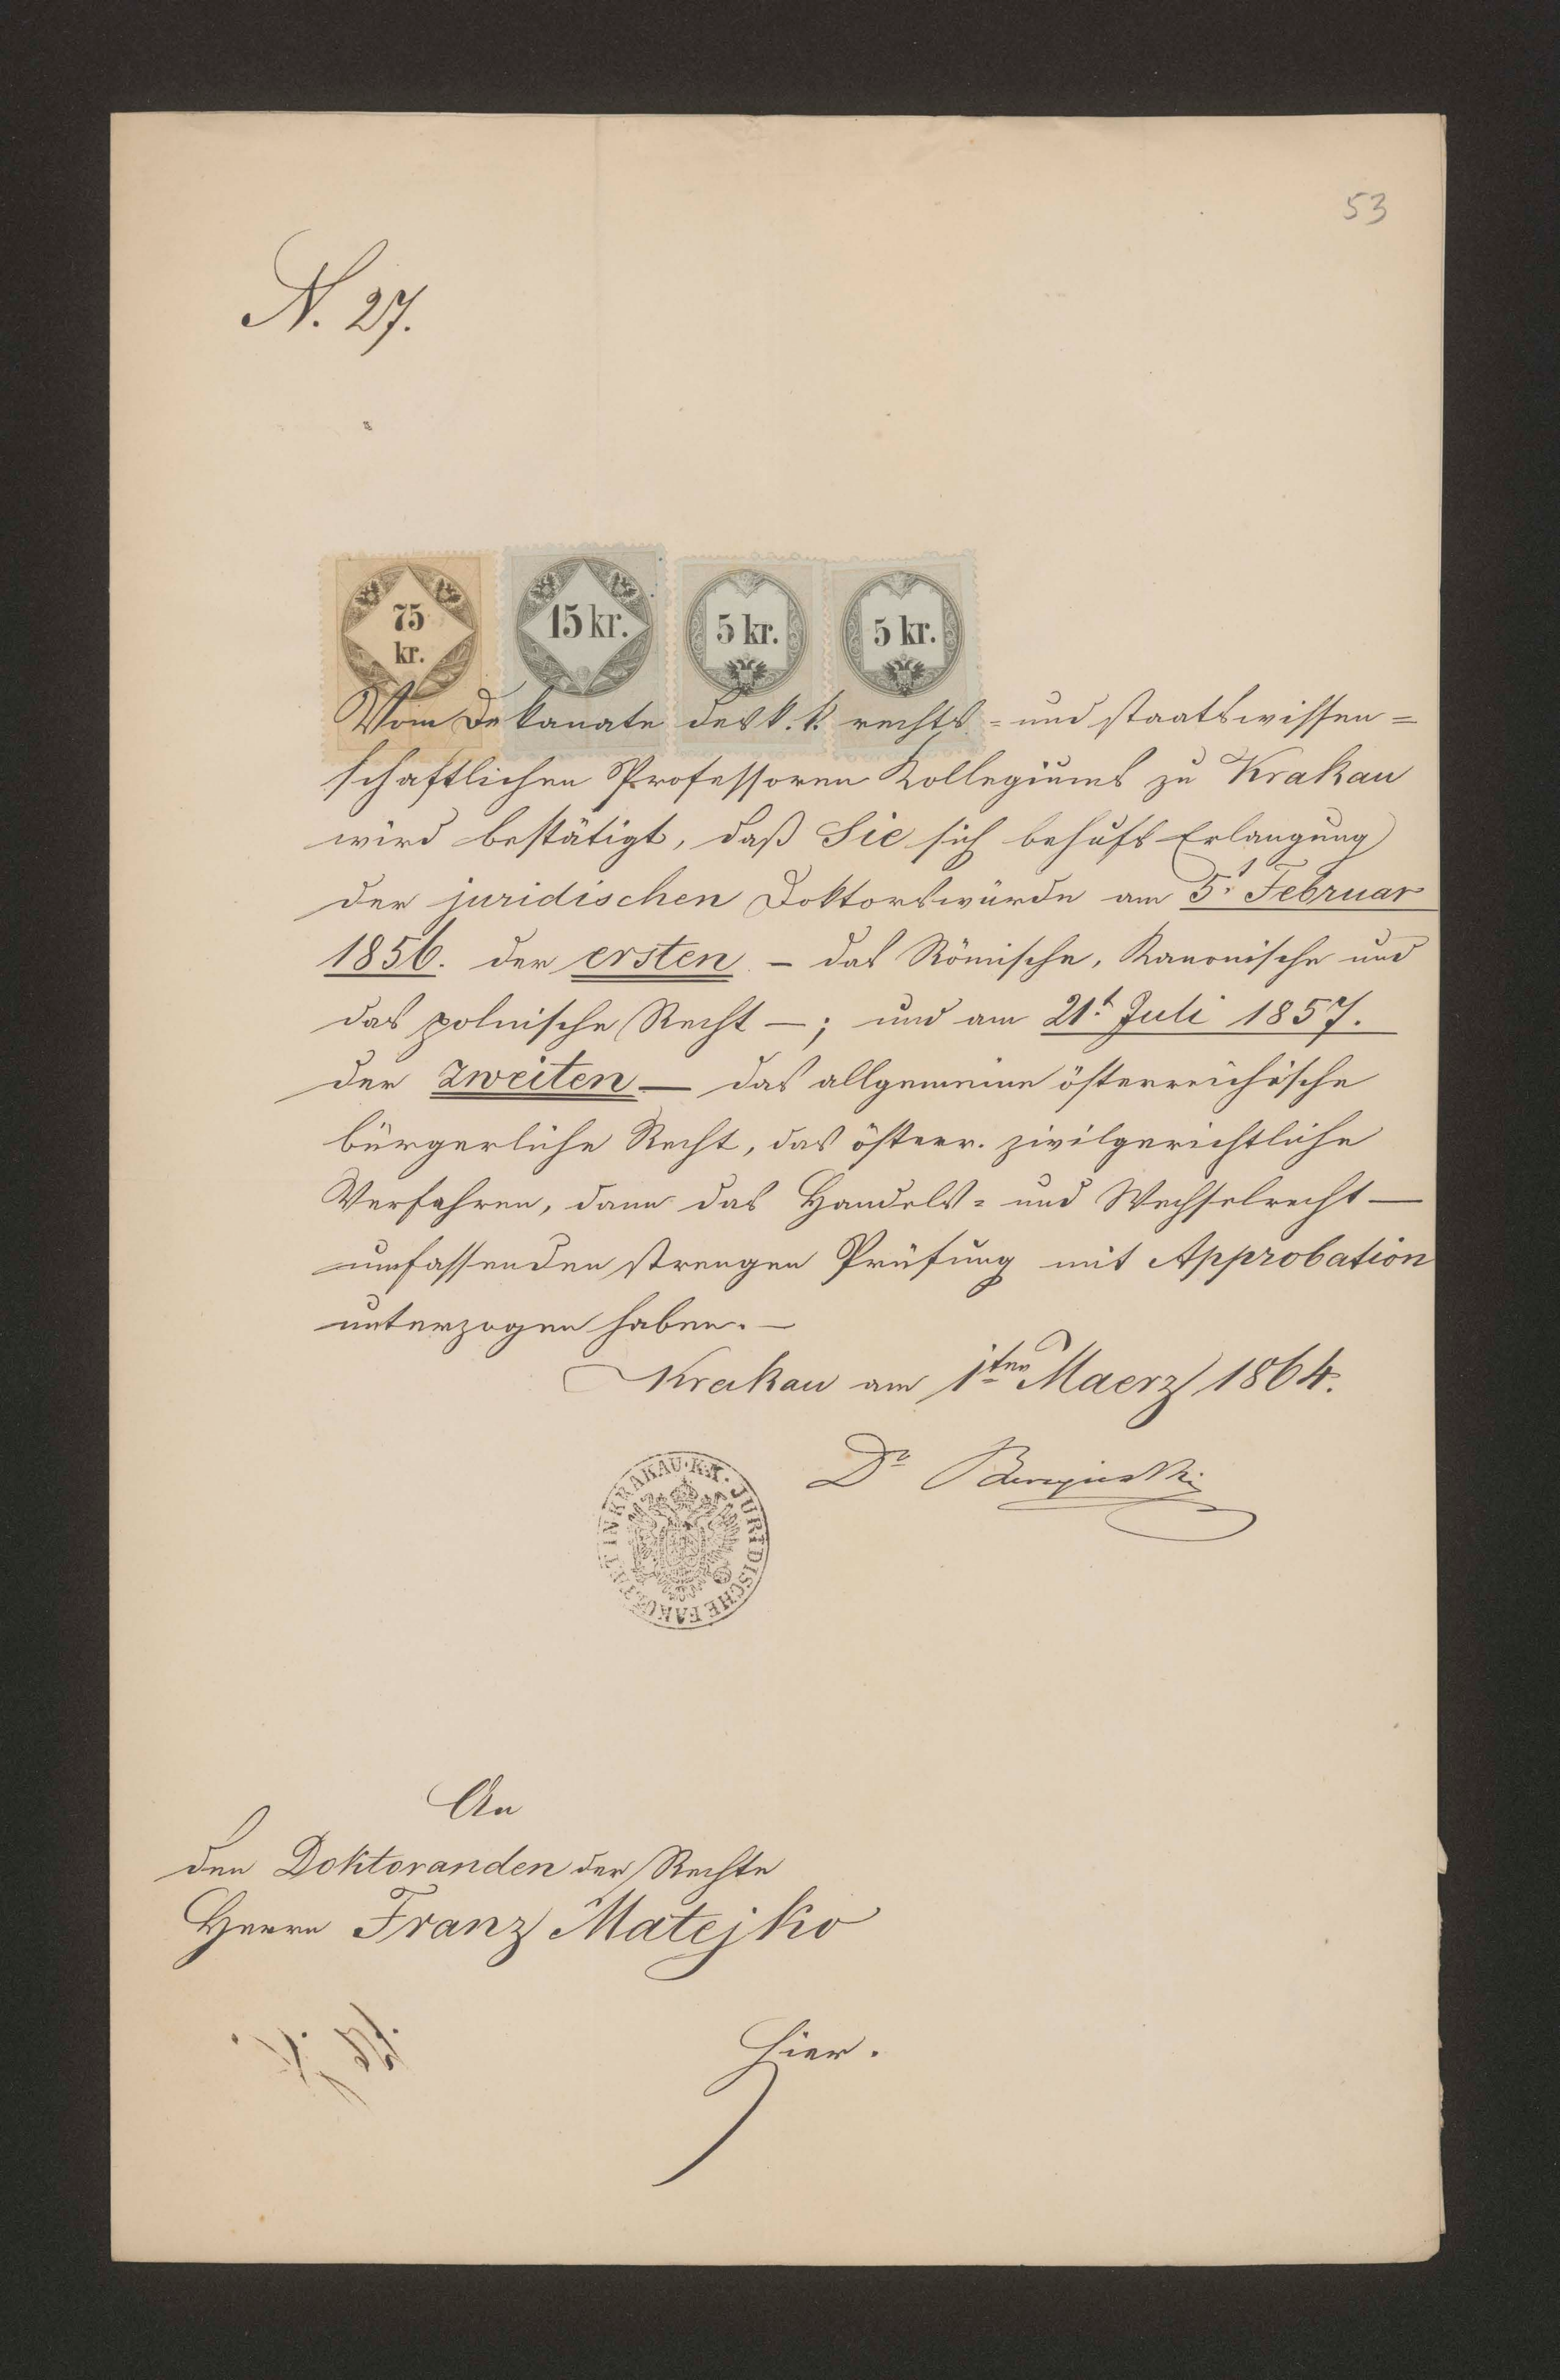 53
N. 27.
75 kr.
15 kr.
5 kr.
5 kr.
Vom Dekanate des k. k. rechts= und staatswissen=
schaftlichen Professoren Kollegiums zu Krakau
wird bestätigt, daß Sie sich behufs Erlangung
der juridischen Doktorswürde am 5t Februar
1856. der ersten – das Römische, Kanonische und
das polnische Recht –; und am 21t Juli 1857.
der zweiten – das allgemeine österreichische
bürgerliche Recht, das österr. zivilgerichtliche
Verfahren, dann das Handels= und Wechselrecht –
umfassenden strengen Prüfung mit Approbation
unterzogen haben. –
Krakau am 1ten Maerz 1864.
Dr
K. K. JURIDISCHE FAKULTÄT IN KRAKAU
An
den Doktoranden der Rechte
Herrn Franz Matejko
hier.